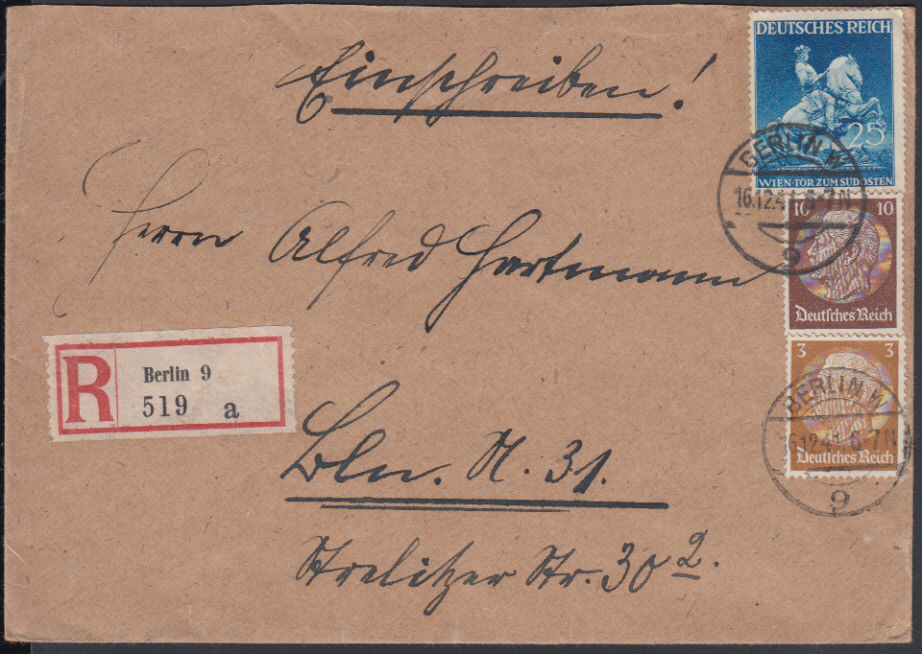 Einschreiben!
DEUTSCHES REICH
25
WIEN·TOR ZUM SÜDOSTEN
BERLIN W
16.12.41.6-7N
9
Herrn Alfred Hartmann
10 10
Deutsches Reich
R
Berlin 9
519 a
3 3
Deutsches Reich
BERLIN W
16.12.41.6-7N
9
Bln. N. 31.
Strelitzer Str. 30 2.